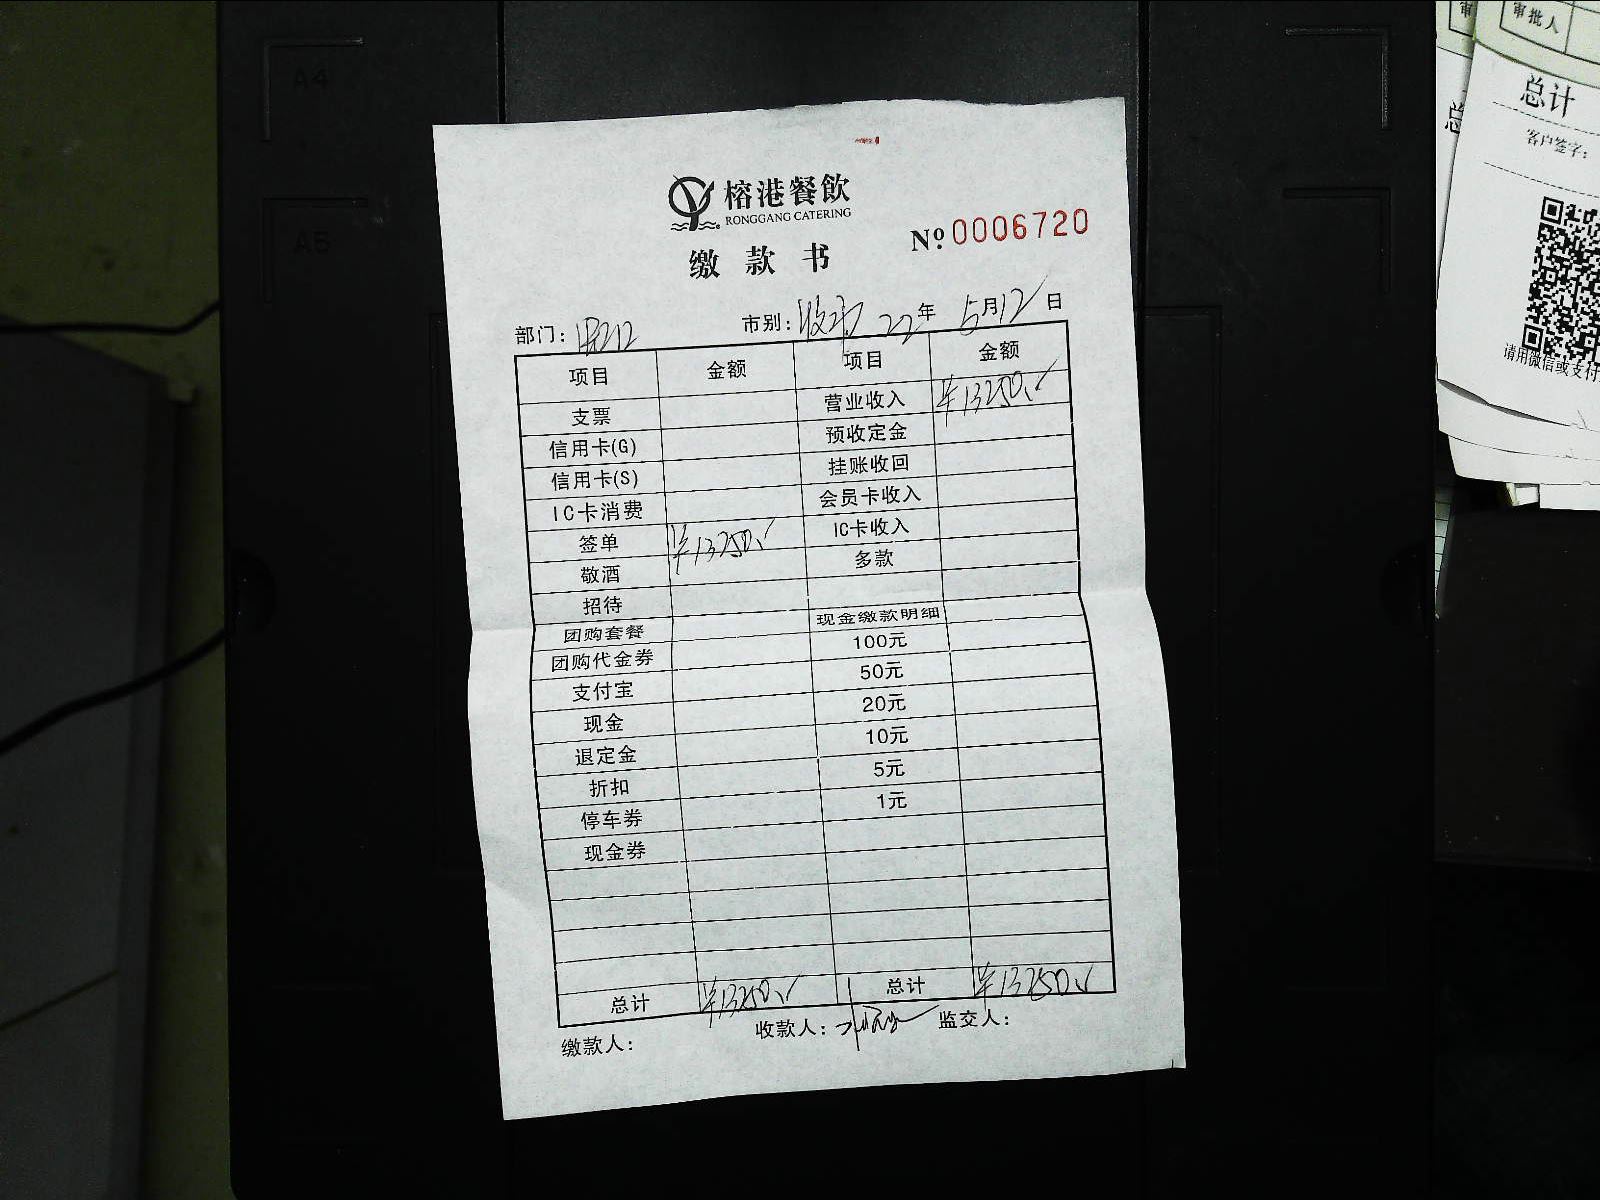 榕港餐飲
RONGGANG CATERING
缴款书
№ 0006720
部门: 市别: 22年 5月12日
项目 金额 项目 金额
支票 营业收入 ¥13250.
信用卡(G) 预收定金
信用卡(S) 挂账收回
IC卡消费 会员卡收入
签单 ¥13250. IC卡收入
敬酒 多款
招待
团购套餐 现金缴款明细
团购代金券 100元
支付宝 50元
现金 20元
退定金 10元
折扣 5元
停车券 1元
现金券
总计 ¥13250. 总计 ¥13250.
缴款人: 收款人: 监交人:
A4
A5
审批人
总计
客户签字:
请用微信或支付